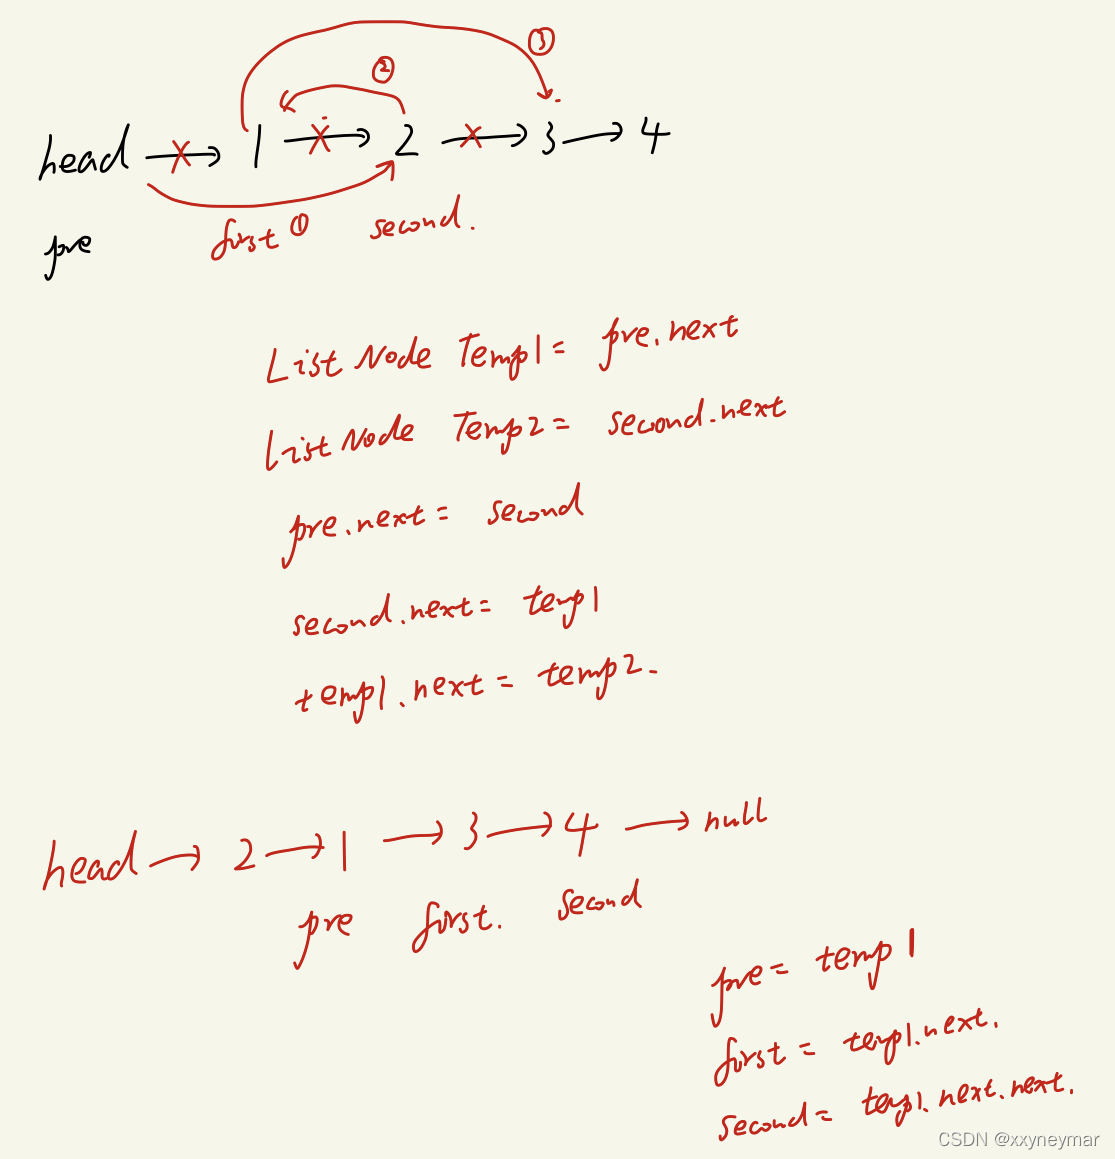 ③
②
head → 1 → 2 → 3 → 4
pre first ① second.
ListNode Temp1 = pre.next
ListNode Temp2 = second.next
pre.next = second
second.next = temp1
temp1.next = temp2.
head → 2 → 1 → 3 → 4 → null
pre first. second
pre = temp1
first = temp1.next.
second = temp1.next.next.
CSDN @xxyneymar